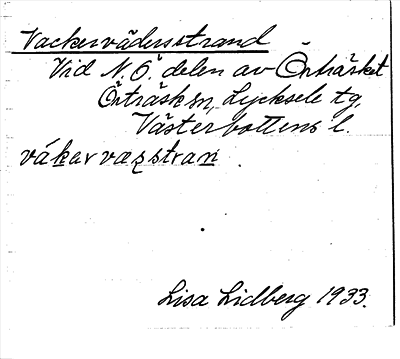 Vackervädersstrand
Vid N.Ö. delen av Örträsket
Örträsk sn, Lycksele tg,
Västerbottens l.
vákarvæʂstran
Lisa Lidberg 1933.